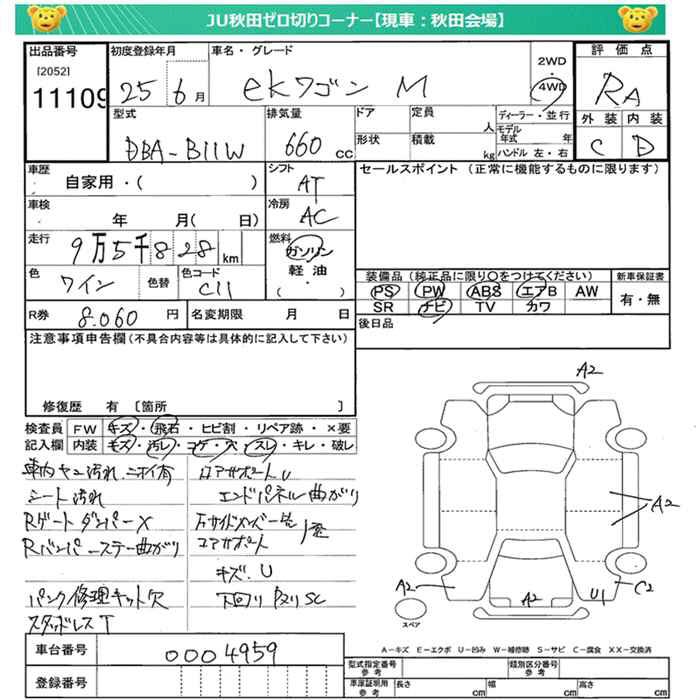 JU秋田ゼロ切りコーナー【現車：秋田会場】
出品番号
[2052]
11109
初度登録年月
25 6月
車名・グレード
ekワゴン M
2WD
4WD
評価点
RA
外装 内装
C D
型式
DBA-B11W
排気量
660 cc
ドア
定員
人
形状
積載
kg
ディーラー・並行
モデル年式 年
ハンドル 左・右
車歴
自家用・( )
シフト
AT
セールスポイント (正常に機能するものに限ります)
車検
年 月( 日)
冷房
AC
走行
9万5千828km
燃料
ガソリン
軽油
( )
色
ワイン
色替
色コード
C11
装備品 (純正品に限り○をつけてください)
PS PW ABS エアB AW
SR ナビ TV カワ
新車保証書
有・無
R券
8,060円
名変期限 月 日
後日品
注意事項申告欄(不具合内容等は具体的に記入して下さい)
修復歴 有 〔箇所 〕
検査員記入欄
FW キズ・飛石・ヒビ割・リペア跡・×要
内装 キズ・汚レ・コゲ・穴・スレ・キレ・破レ
車内ヤニ汚れ、ニオイ有
シート汚れ
RゲートダンパーX
Rバンパーステー曲がり
パンク修理キット欠
スタッドレスT
コアサポートU
エンドパネル曲がり
コアサポート
キズ、U
下回りサビSC
A2
A2
A2
A2
U1
C2
スペア
A-キズ E-エクボ U-凹み W-補修跡 S-サビ C-腐食 XX-交換済
車台番号
0004959
登録番号
型式指定番号
参考
類別区分番号
参考
車庫証明用
参考
長さ cm
幅 cm
高さ cm